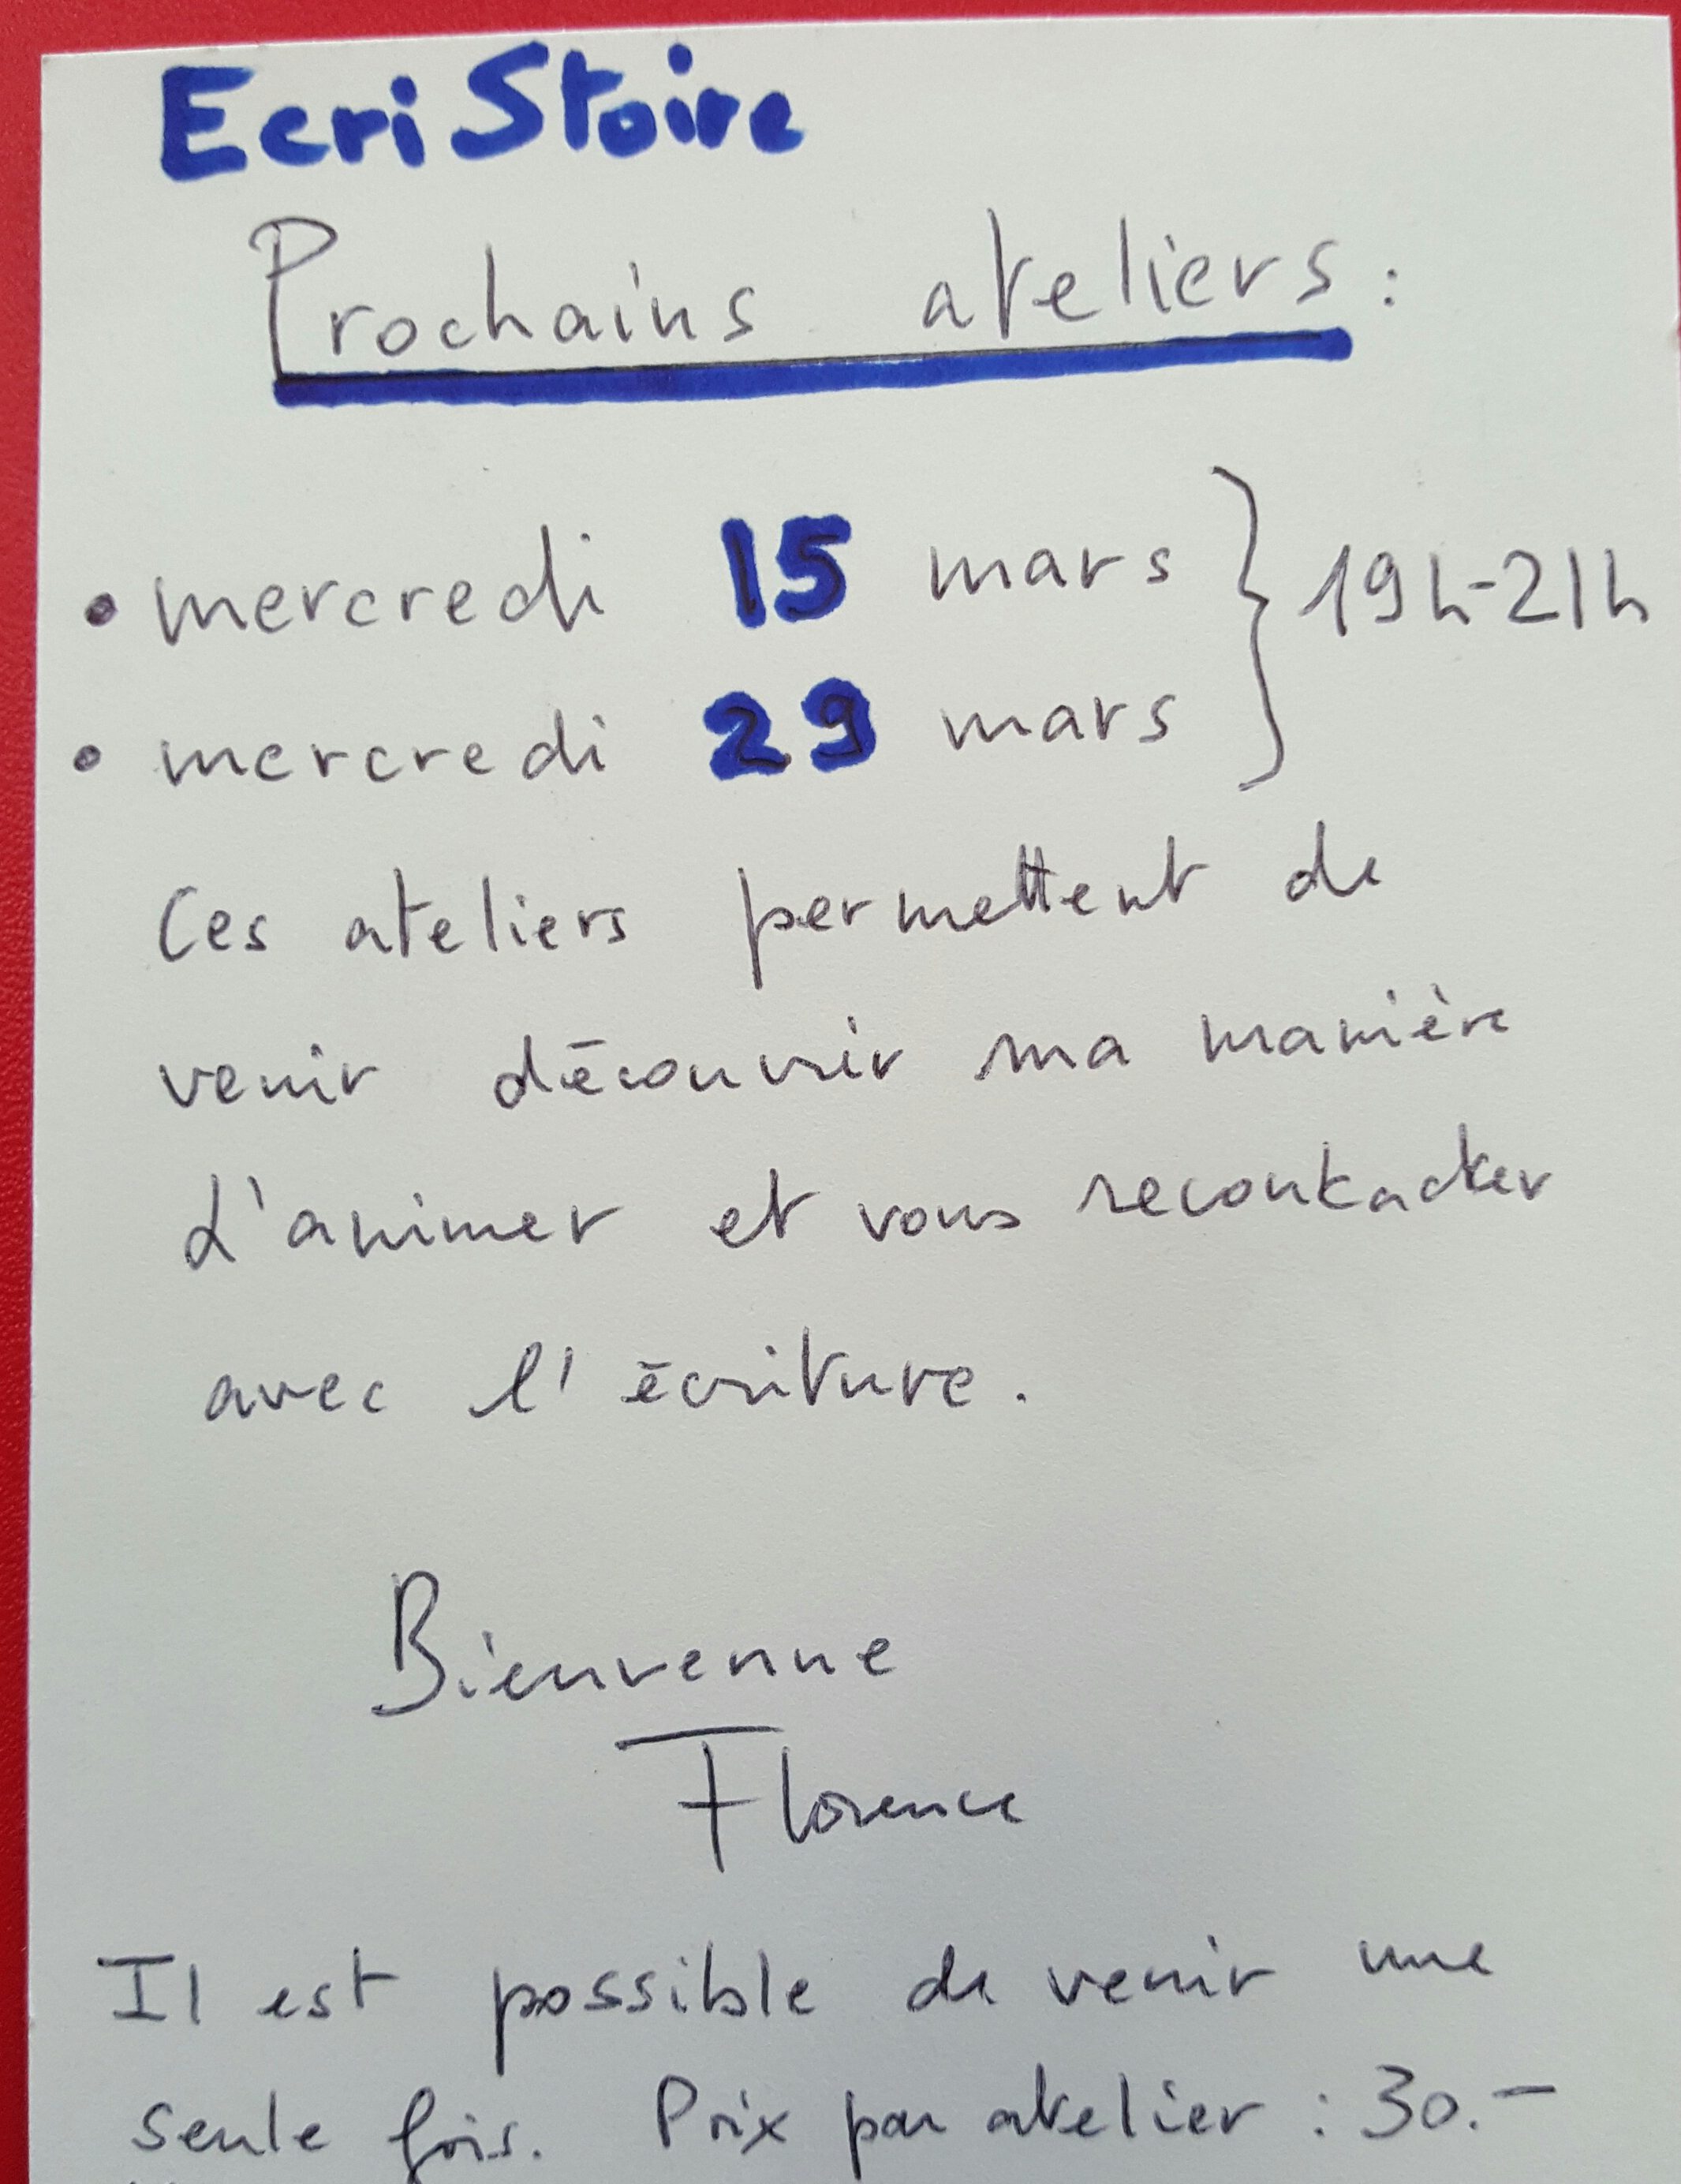 EcriStoire
Prochains ateliers :
• mercredi 15 mars } 19h-21h
• mercredi 29 mars
Ces ateliers permettent de
venir découvrir ma manière
d'animer et vous recontacter
avec l'écriture.
Bienvenue
Florence
Il est possible de venir une
seule fois. Prix par atelier : 30.–